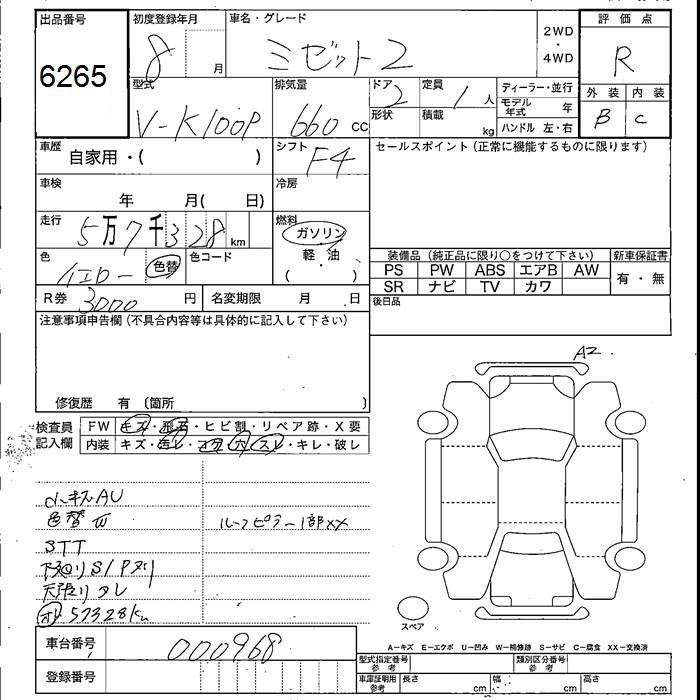 出品番号
6265
初度登録年月
8 月
車名・グレード
ミゼット2
2WD
・
4WD
評価点
R
外装 内装
B C
型式
V-K100P
排気量
660 cc
ドア
2
定員
1 人
形状
積載
kg
ディーラー・並行
モデル年式 年
ハンドル 左・右
車歴
自家用・( )
シフト
F4
セールスポイント(正常に機能するものに限ります)
車検
年 月( 日)
冷房
走行
5万7千328 km
燃料
ガソリン
軽・油
( )
色
イエロー 色替
色コード
装備品(純正品に限り○をつけて下さい) 新車保証書
PS PW ABS エアB AW
SR ナビ TV カワ
有・無
R券
3000 円
名変期限 月 日
後日品
注意事項申告欄(不具合内容等は具体的に記入して下さい)
修復歴 有 〔箇所 〕
A2
検査員
記入欄
FW キズ・飛石・ヒビ割・リペア跡・X要
内装 キズ・汚レ・コゲ・穴・スレ・キレ・破レ
小キズAU
色替W
ルーフピラー1部XX
STT
下廻りS/Pヌリ
天張りタレ
57328km
スペア
車台番号
000968
登録番号
A-キズ E-エクボ U-凹み W-補修跡 S-サビ C-腐食 XX-交換済
型式指定番号
参考
類別区分番号
参考
車庫証明用
参考
長さ cm
幅 cm
高さ cm